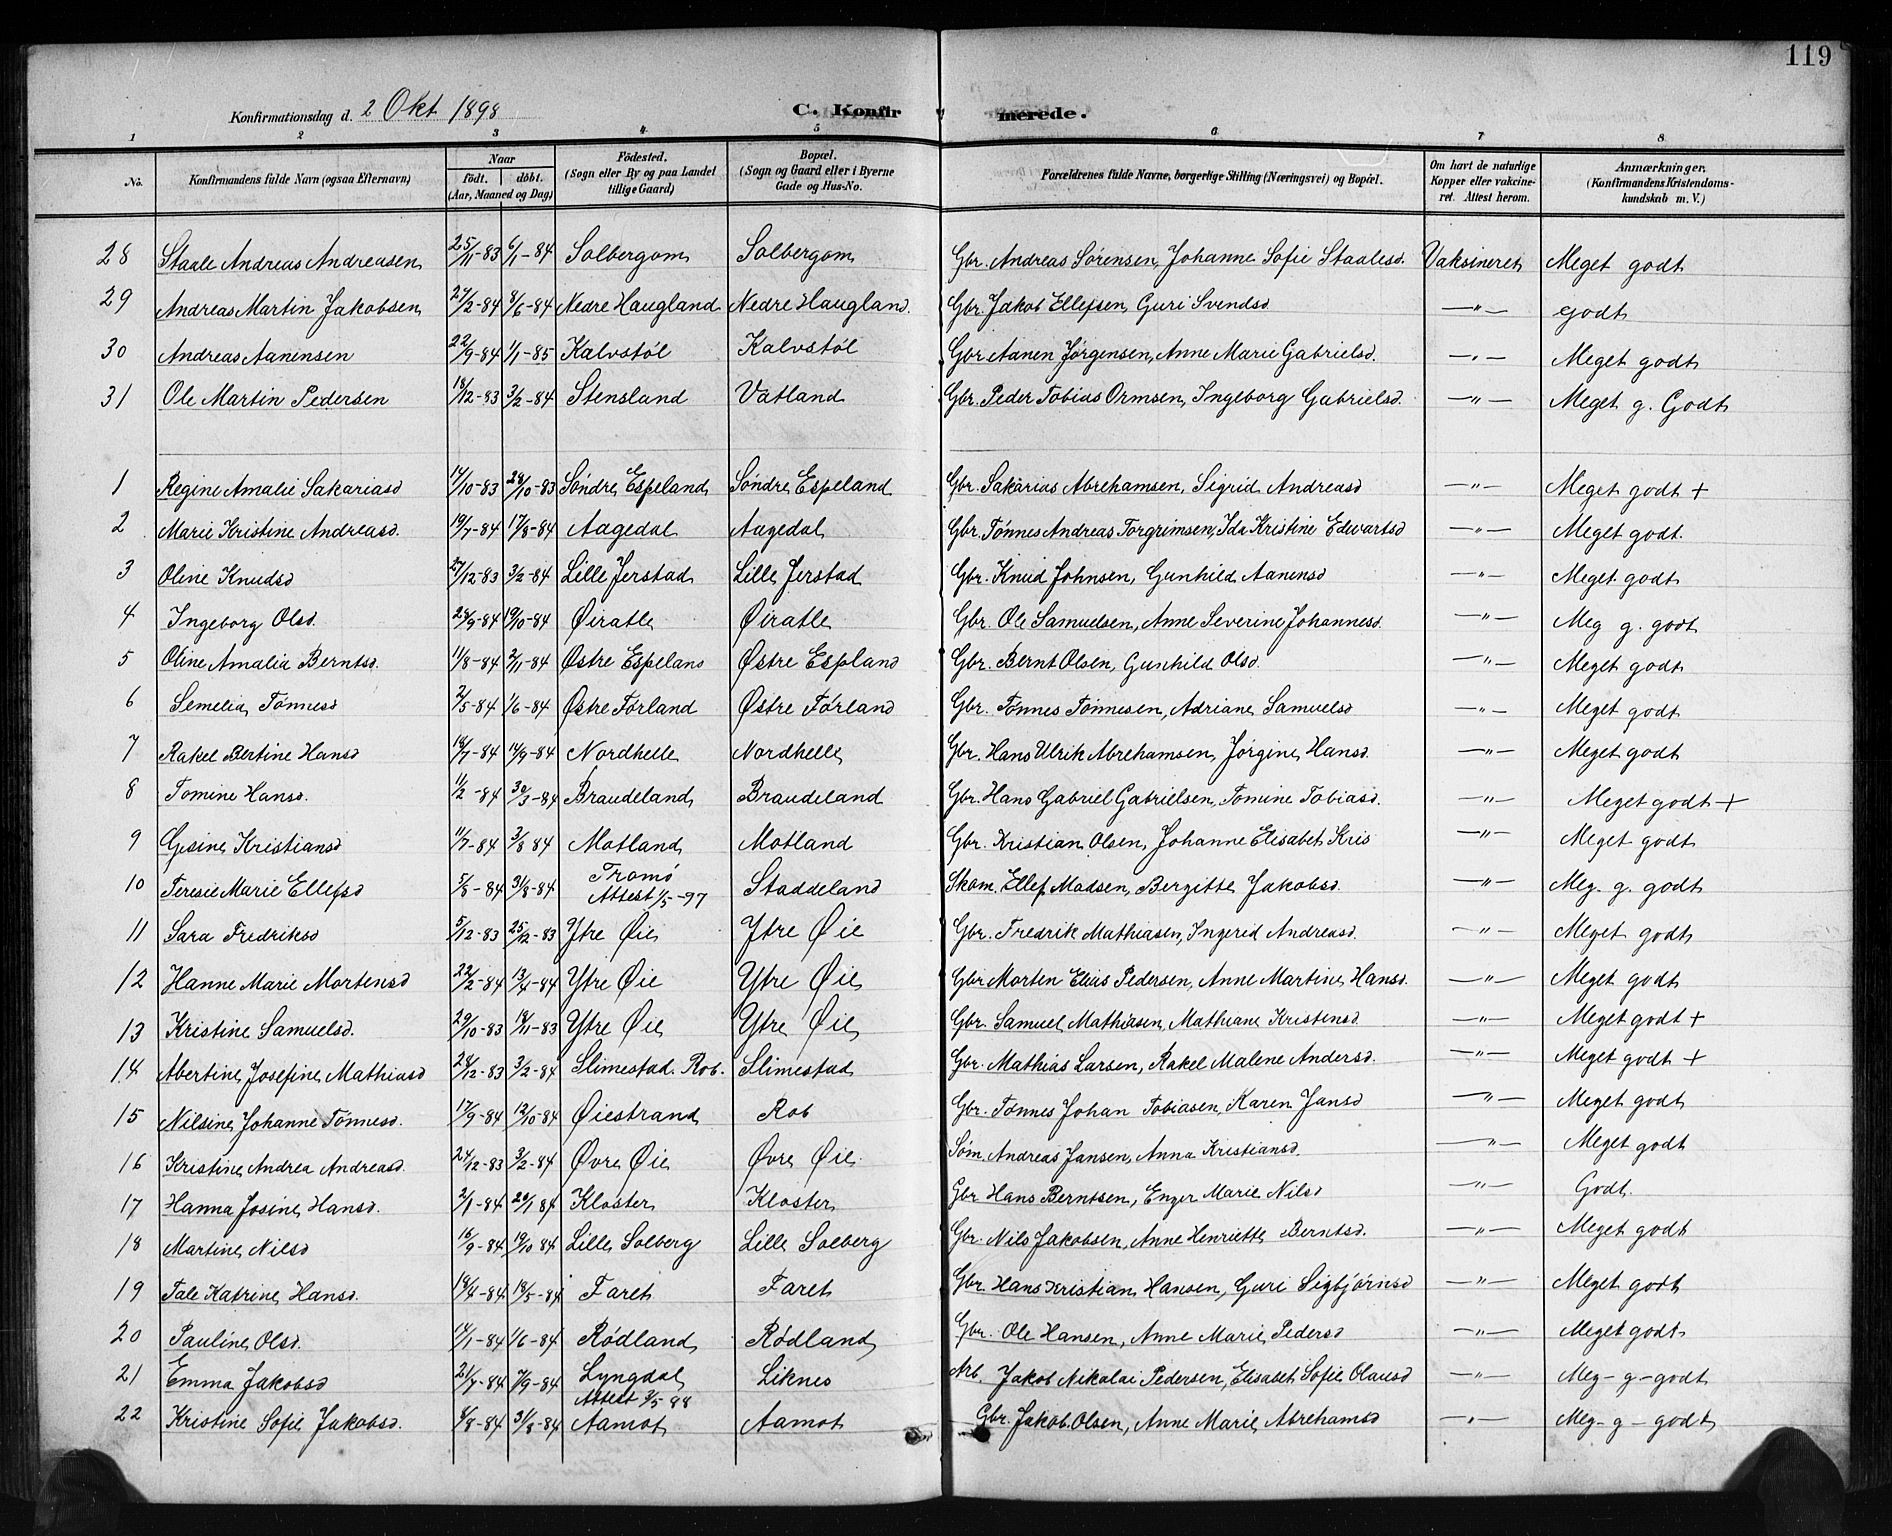 119
Konfirmationsdag d. 2 Okt 1898
C. Konfirmerede.
1 2 3 4 5 6 7 8
No.
Konfirmandens fulde Navn (ogsaa Efternavn)
Naar
født. døbt.
(Aar, Maaned og Dag)
Födested.
(Sogn eller By og paa Landet
tillige Gaard)
Bopæl.
(Sogn og Gaard eller i Byerne
Gade og Hus-No.
Forældrenes fulde Navne, borgerlige Stilling (Næringsvei) og Bopæl.
Om havt de naturlige
Kopper eller vakcine-
ret. Attest herom.
Anmærkninger.
(Konfirmandens Kristendoms-
kundskab m. V.)
28 Staale Andreas Andreasen 25/11-83 6/1-84 Solbergom Solbergom Gbr. Andreas Sørensen, Johanne Sofie Staalesd. Vaksineret Meget godt
29 Andreas Martin Jakobsen 27/2-84 8/6-84 Nedre Haugland Nedre Haugland. Gbr. Jakob Ellefsen, Guri Svendsd —"— godt
30 Andreas Aanensen 22/9-84 1/1-85 Kalvstøl Kalvstøl Gbr. Aanen Jørgensen, Anne Marie Gabrielsd. —"— Meget godt
31 Ole Martin Pedersen 18/12-83 3/2-84 Stensland Vatland Gbr. Peder Tobias Ormsen, Ingeborg Gabrielsd. —"— Meget g. Godt
1 Regine Amalie Sakariasd 14/10-83 28/10-83 Søndre Espeland Søndre Espeland Gbr. Sakarias Abrehamsen, Sigrid Andreasd —"— Meget godt +
2 Marie Kristine Andreasd. 19/7-84 17/8-84 Aagedal Aagedal Gbr. Tønnes Andreas Torgrimsen, Ida Kristine Edvartsd —"— Meget godt.
3 Oline Knudsd 27/12-83 3/2-84 Lille Jerstad Lille Jerstad Gbr. Knud Johnsen, Gunhild Aanensd —"— Meget godt
4 Ingeborg Olsd. 28/9-84 19/10-84 Øiratle Øiratle Gbr. Ole Samuelsen, Anne Severine Johannesd. —"— Meg g. godt
5 Oline Amalia Berntsd. 11/8-84 2/11-84 Østre Espeland Østre Espland Gbr. Bernt Olsen, Gunhild Olsd. —"— Meget godt
6 Semelia Tønnesd 2/5-84 1/6-84 Østre Førland Østre Førland Gbr. Tønnes Tønnesen, Adriane Samuelsd —"— Meget godt
7 Rakel Bertine Hansd 18/7-84 14/9-84 Nordhelle Nordhelle Gbr. Hans Ulrik Abrehamsen, Jørgine Hansd. —"— Meget godt
8 Tomine Hansd. 11/2-84 30/3-84 Braudeland Braudeland Gbr. Hans Gabriel Gabrielsen, Tomine Tobiasd. —"— Meget godt +
9 Gesine Kristiansd 11/7-84 3/8 84 Motland Motland Gbr. Kristian Olsen, Johanne Elisabet Kris —"— Meget godt
10 Teresie Marie Ellefsd 5/8-84 31/8-84 Tromø Attest 1/5-97 Staddeland Skom. Ellef Madsen, Bergitte Jakobsd. —"— Meg. g. godt
11 Sara Fredriksd 5/12-83 25/12-83 Ytre Øie Ytre Øie Gbr. Fredrik Mathiasen, Ingerid Andreasd. —"— Meget godt
12 Hanne Marie Mortensd 22/2-84 13/4-84 Ytre Øie Ytre Øie Gbr Morten Elias Pedersen, Anne Martine Hansd. —"— Meget godt
13 Kristine Samuelsd. 29/10-83 18/11-83 Ytre Øie Ytre Øie Gbr. Samuel Mathiasen, Mathiane Kristensd. —"— Meget godt +
14 Abertine Josefine Mathiasd 24/12-83 3/2-84 Slimestad. Rob. Slimestad Gbr. Mathias Larsen, Rakel Malene Andersd. —"— Meget godt +
15 Nilsine Johanne Tønnesd. 17/9-84 12/10-84 Øiestrand Rob Gbr. Tønnes Johan Tobiasen, Karen Jansd —"— Meget godt
16 Kristine Andrea Andreasd. 24/12-83 3/2-84 Øvre Øie Øvre Øie Søm. Andreas Jansen, Anna Kristiansd. —"— Meget godt
17 Hanna Josine Hansd. 2/1-84 20/1 84 Kloster Kloster Gbr Hans Berntsen, Enger Marie Nilsd —"— Godt.
18 Martine Nilsd 16/9-84 19/10 84 Lille Solberg Lille Solberg Gbr. Nils Jakobsen, Anne Henriette Berntsd. —"— Meget godt
19 Tale Katrine Hansd. 14/4-84 18/5-84 Faret Faret Gbr. Hans Kristian Hansen, Guri Sigbjørnsd —"— Meget godt
20 Pauline Olsd. 14/1-84 1/6-84 Rødland Rødland Gbr. Ole Hansen, Anne Marie Pedersd —"— Meget godt
21 Emma Jakobsd 21/7-84 7/9-84 Lyngdal Attest 3/5-98 Liknes Arb. Jakob Nikolai Pedersen, Elisabet Sofie Olausd —"— Meg-g-godt
22 Kristine Sofie Jakobsd. 8/8-84 31/8-84 Aamot Aamot Gbr. Jakob Olsen, Anne Marie Abrehamsd —"— Meg-g-godt